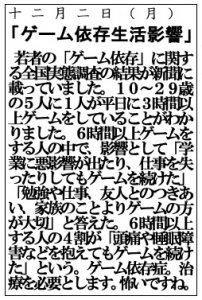 十二月二日（月）
「ゲーム依存生活影響」
若者の「ゲーム依存」に関す
る全国実態調査の結果が新聞に
載っていました。１０～２９歳
の５人に１人が平日に３時間以
上ゲームをしていることがわか
りました。６時間以上ゲームを
する人の中で、影響として「学
業に悪影響が出たり、仕事を失
ったりしてもゲームを続けた」
「勉強や仕事、友人とのつきあ
い、家族のことよりゲームの方
が大切」と答えた。６時間以上
する人の４割が「頭痛や睡眠障
害などを抱えてもゲームを続け
た」という。ゲーム依存症。治
療を必要とします。怖いですね。